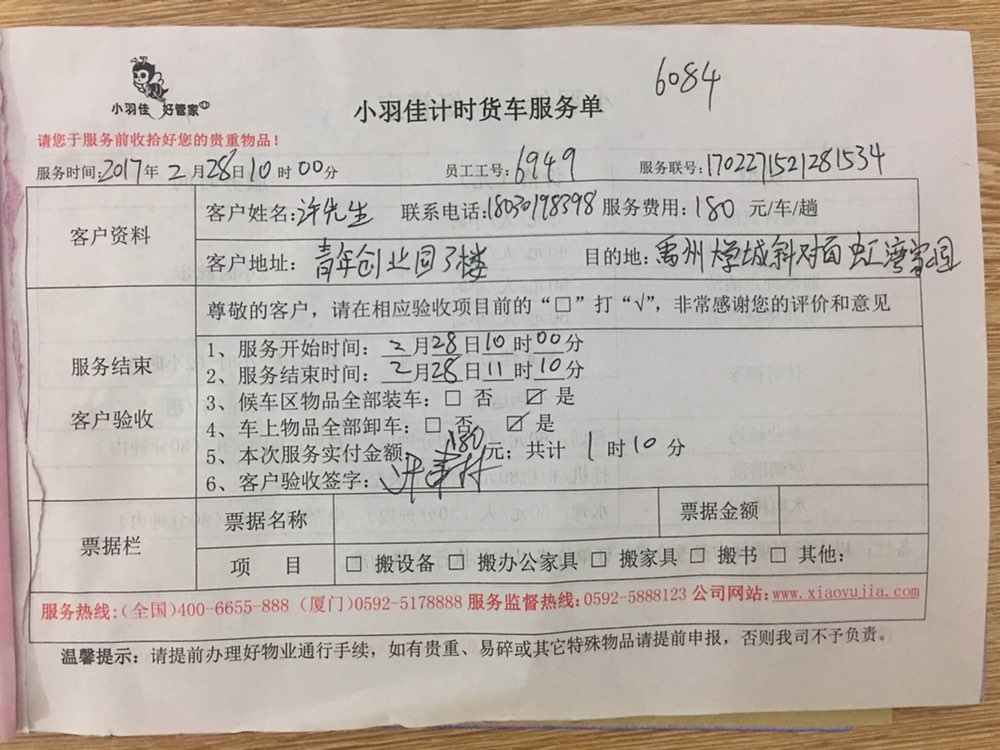 6084
小羽佳 好管家
小羽佳计时货车服务单
请您于服务前收拾好您的贵重物品！
服务时间:2017年 2 月28日10 时 00分 员工工号:6949 服务联号:1702271521281534
客户资料
客户姓名:许先生 联系电话:18030198398 服务费用:180 元/车/趟
客户地址: 青年创业园3楼 目的地: 禹州大学城斜对面虹湾家园
尊敬的客户，请在相应验收项目前的“□”打“√”，非常感谢您的评价和意见
服务结束
客户验收
1、服务开始时间: 2 月28日10 时00分
2、服务结束时间: 2 月28日11 时10分
3、候车区物品全部装车: □ 否 ☑ 是
4、车上物品全部卸车: □ 否 ☑ 是
5、本次服务实付金额 180 元；共计 1 时 10 分
6、客户验收签字:
票据栏
票据名称 票据金额
项 目 □ 搬设备 □ 搬办公家具 □ 搬家具 □ 搬书 □ 其他:
服务热线:(全国)400-6655-888 (厦门)0592-5178888 服务监督热线:0592-5888123 公司网站:www.xiaoyujia.com
温馨提示: 请提前办理好物业通行手续，如有贵重、易碎或其它特殊物品请提前申报，否则我司不予负责。